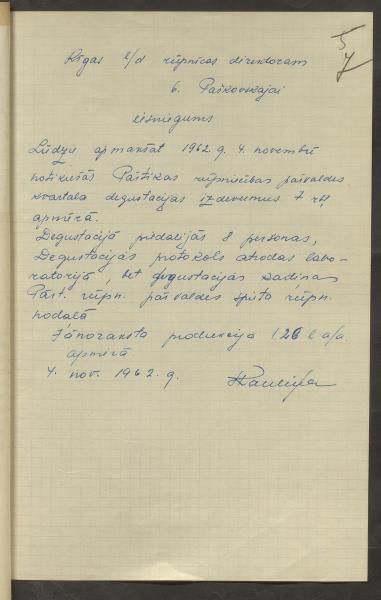 5
7
Rīgas l/d rūpnīcas direktoram
b. Paškovskajai
iesniegums
Lūdzu apmaksāt 1962. g. 4. novembrī
notikušās Pārtikas rūpniecības pārvaldes
kvartala degustācijas izdevumus 7 rbļ
apmērā.
Degustācijā piedalījās 8 personas,
Degustācijas protokols atrodas labo-
ratorijā, bet degustācijas
Pārt. rūpn. pārvaldes spirta rūpn.
nodaļā
Jānoraksta produkcija 1,26 l a/a
apmērā
4. nov. 1962. g.